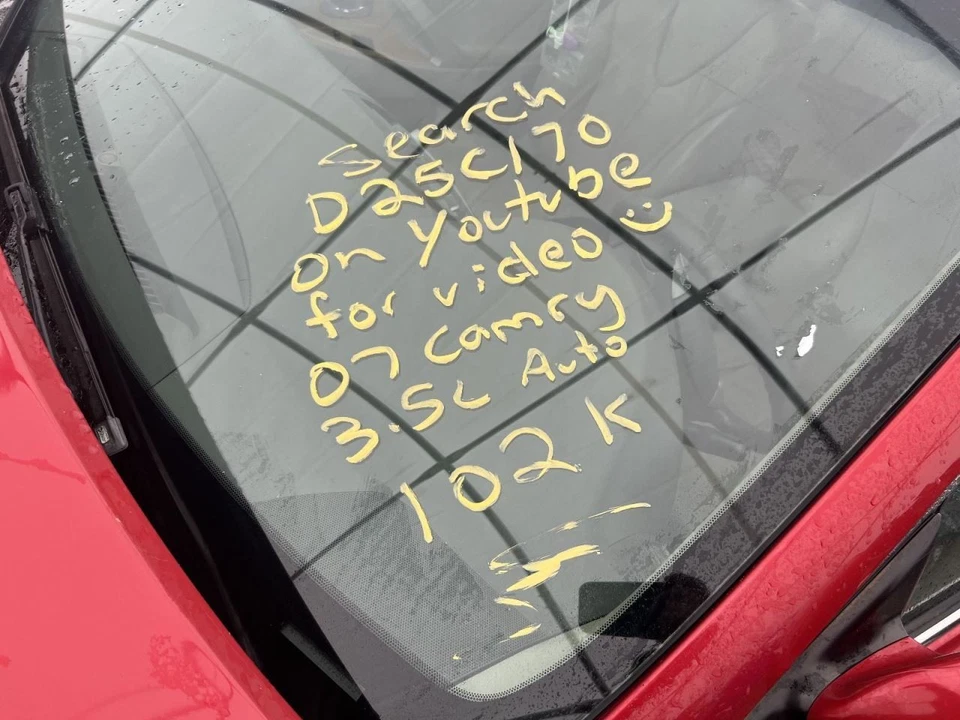 Search
D25C170
on youtube
for video :)
07 Camry
3.5L Auto
102K